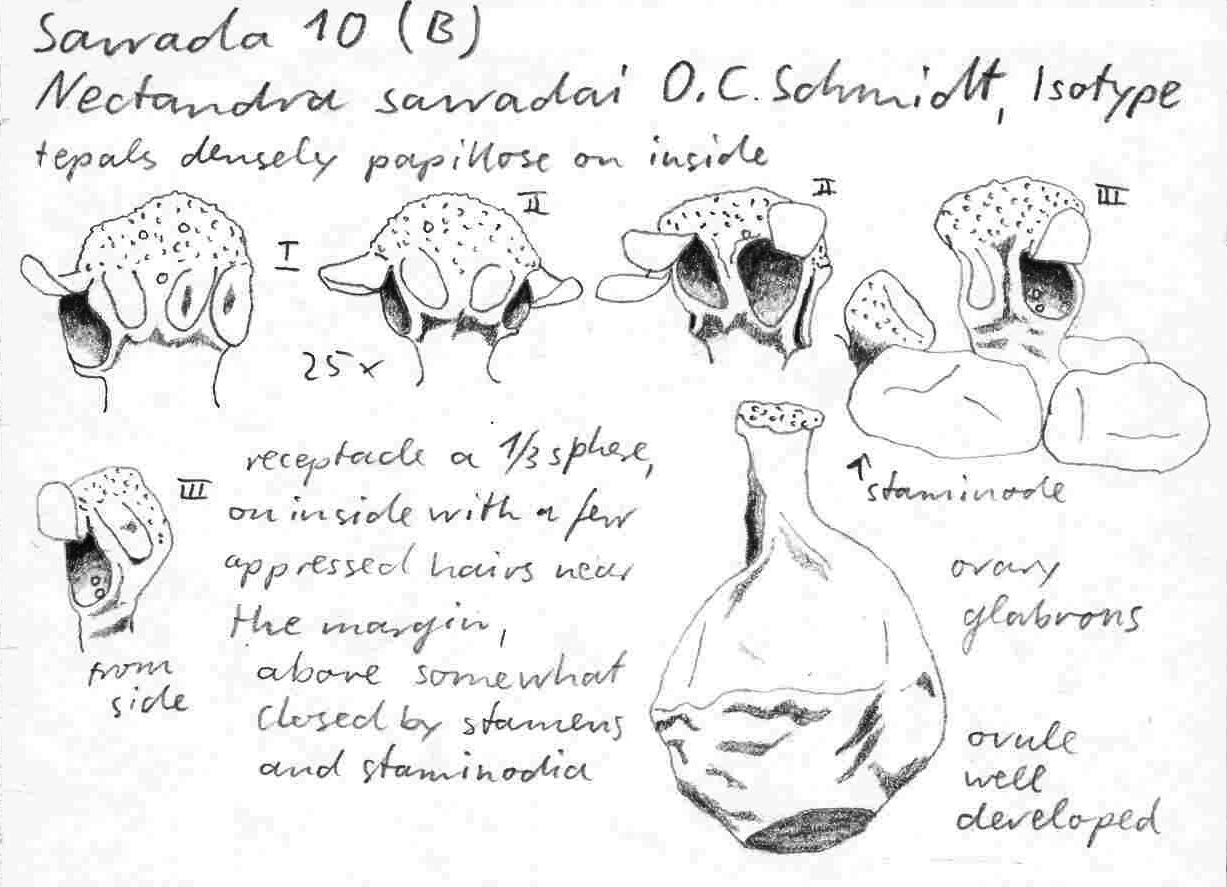 Sawada 10 (B)
Nectandra sawadai O.C. Schmidt, Isotype
tepals densely papillose on inside
I
II
II
III
25 x
↑
staminode
III
from
side
receptacle a 1/3 sphere,
on inside with a few
appressed hairs near
the margin,
above somewhat
closed by stamens
and staminodia
ovary
glabrous
ovule
well
developed